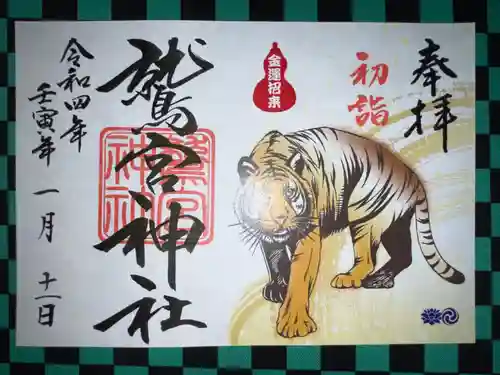 奉拝
初詣
金運招来
鷲宮神社
鷲宮神社
令和四年
壬寅年
一月 十一日